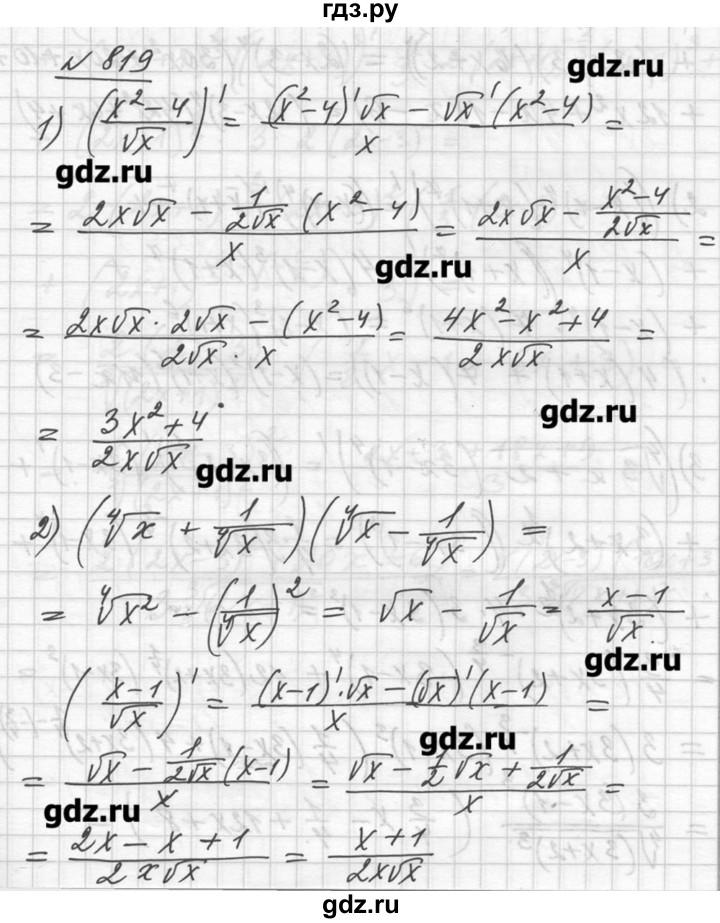 гдз.ру
№ 819
gdz.ru
1) ((x²-4)/√x)' = ((x²-4)'√x - √x'(x²-4))/x =
gdz.ru
= (2x√x - 1/(2√x) (x²-4))/x = (2x√x - (x²-4)/(2√x))/x =
gdz.ru
= (2x√x · 2√x - (x²-4))/(2√x · x) = (4x²-x²+4)/(2x√x) =
gdz.ru
= (3x²+4)/(2x√x)
gdz.ru
2) (⁴√x + 1/⁴√x)(⁴√x - 1/⁴√x) =
= ⁴√x² - (1/⁴√x)² = √x - 1/√x = (x-1)/√x.
gdz.ru
((x-1)/√x)' = ((x-1)'·√x - (√x)'(x-1))/x =
gdz.ru
= (√x - 1/(2√x) (x-1))/x = (√x - 1/2 √x + 1/(2√x))/x =
gdz.ru
= (2x - x + 1)/(2x√x) = (x+1)/(2x√x)
gdz.ru